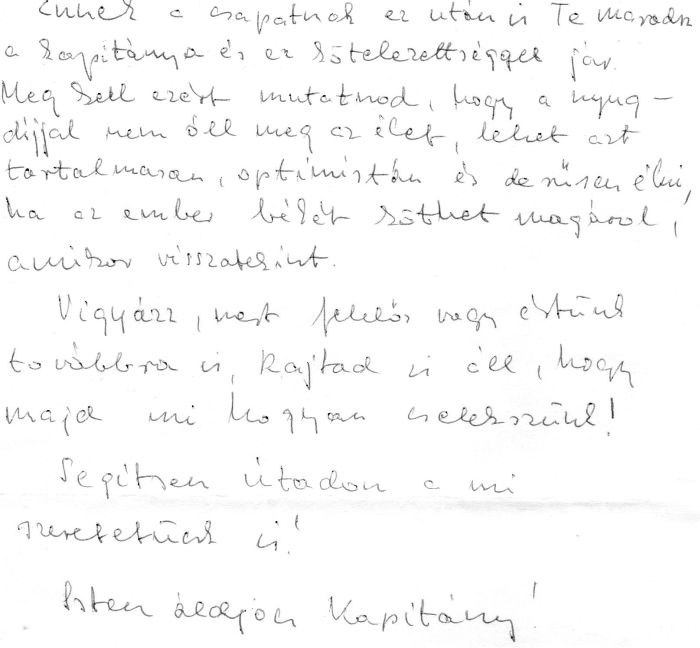 Ennek a csapatnak ez után is Te maradsz
a kapitánya és ez kötelezettséggel jár.
Meg kell ezért mutatnod, hogy a nyug-
díjjal nem áll meg az élet, lehet azt
tartalmasan, optimistán és derűsen élni,
ha az ember békét köthet magával,
amikor visszatekint.
Vigyázz, mert felelős vagy értünk
továbbra is, Rajtad is áll, hogy
majd mi hogyan cselekszünk!
Segítsen útadon a mi
szeretetünk is!
Isten áldjon Kapitány!